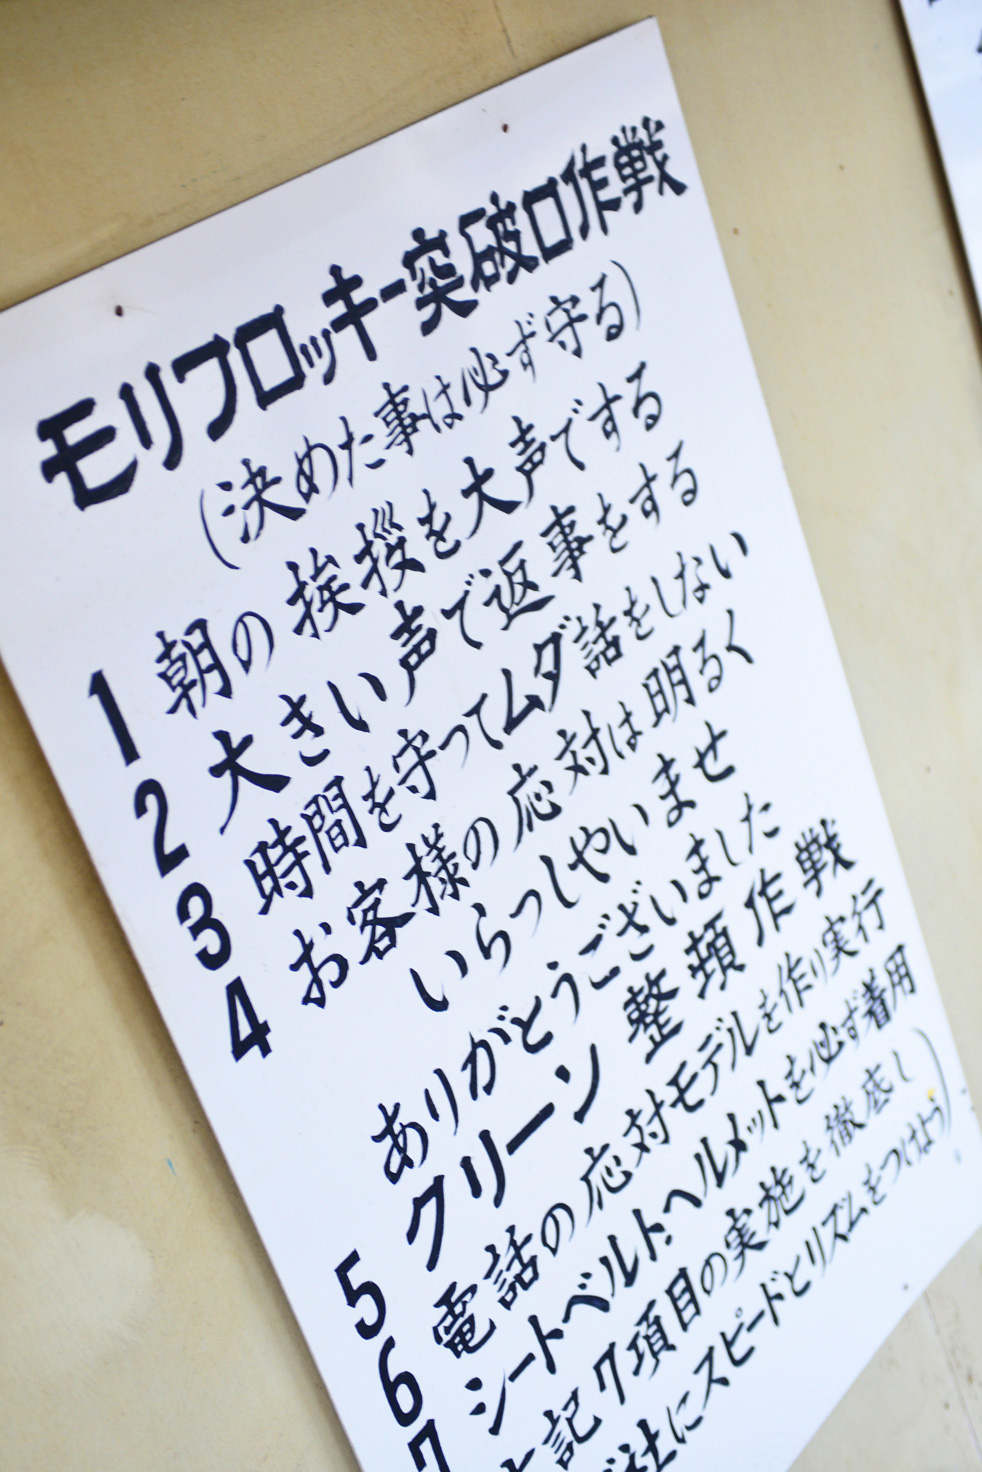 モリブロッキー突破口作戦
(決めた事は必ず守る)
1 朝の挨拶を大声でする
2 大きい声で返事をする
3 時間を守ってムダ話をしない
4 お客様の応対は明るく
いらっしゃいませ
ありがとうございました
5 クリーン整頓作戦
6 電話の応対モデルを作り実行
7 シートベルト、ヘルメットを必ず着用
上記7項目の実施を徹底し
社にスピードとリズムをつけよう)